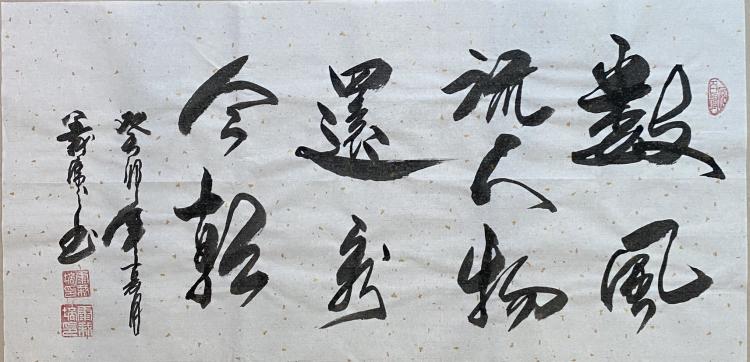 數風
流人物
還看
今朝
癸卯年
書